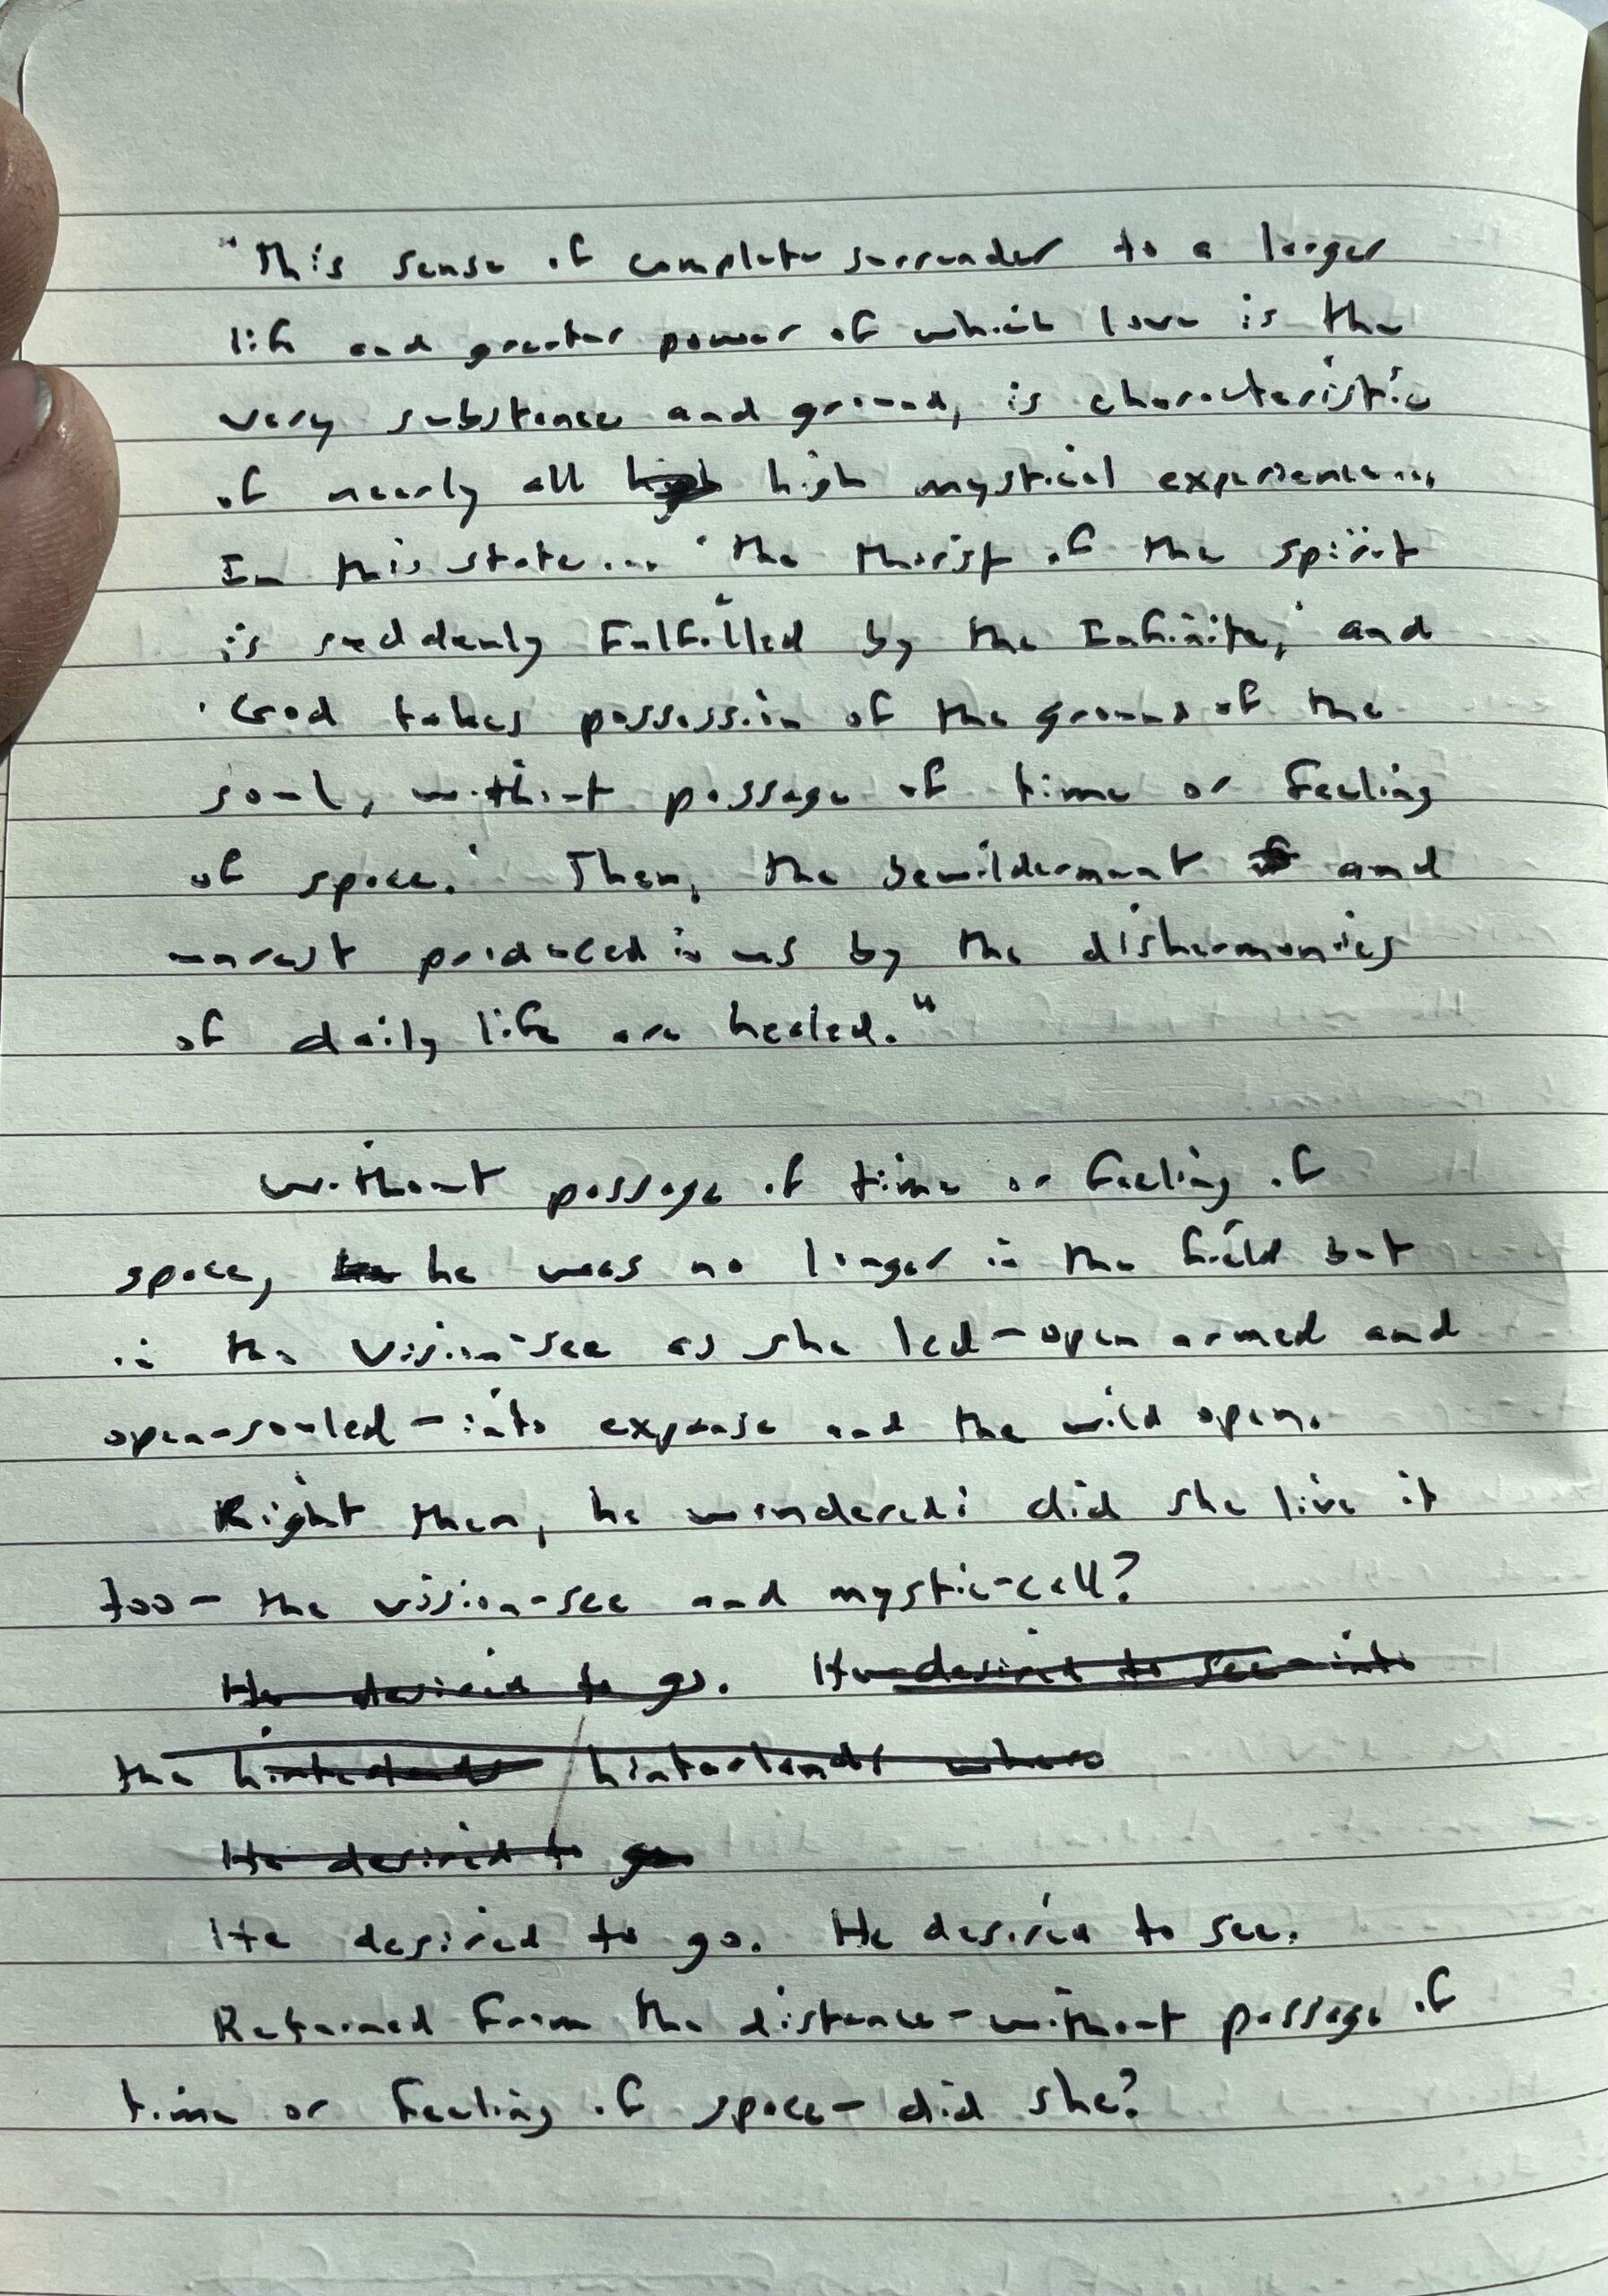 "This sense of complete surrender to a larger
life and greater power of which love is the
very substance and ground, is characteristic
of nearly all high high mystical experience...
In this state... 'the thirst of the spirit
is suddenly fulfilled by the Infinite,' and
'God takes possession of the ground of the
soul, without passage of time or feeling
of space.' Then, the bewilderment and
unrest produced in us by the disharmonies
of daily life are healed."
Without passage of time or feeling of
space, he was no longer in the field but
in the vision-see as she led - open armed and
open-souled - into expanse and the wild open.
Right then, he wondered: did she live it
too - the vision-see and mystic-call?
He desired to go. He desired to see into
the hinterlands hinterlands where
He desired to go
He desired to go. He desired to see.
Returned from the distance - without passage of
time or feeling of space - did she?